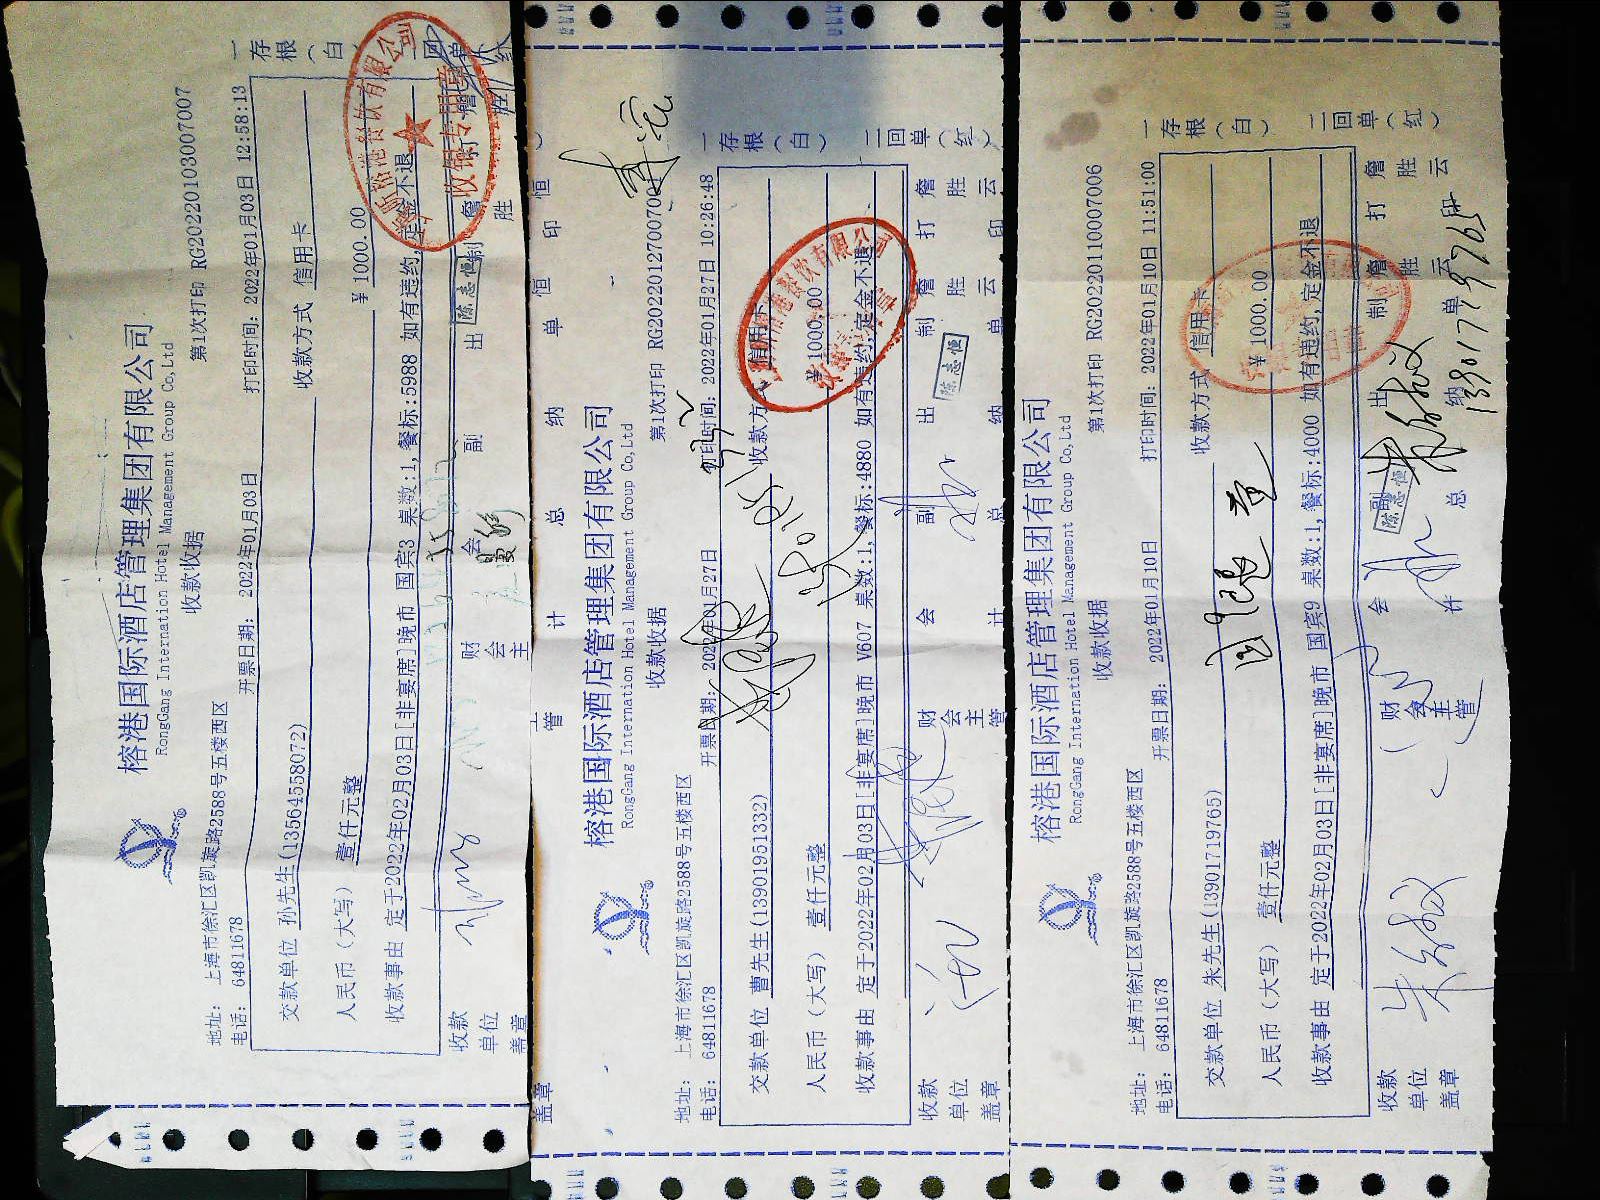 榕港国际酒店管理集团有限公司
RongGang Internation Hotel Management Group Co,Ltd
收款收据
第1次打印 RG20220103007007
地址: 上海市徐汇区凯旋路2588号五楼西区
电话: 64811678
开票日期: 2022年01月03日
打印时间: 2022年01月03日 12:58:13
交款单位 孙先生(13564558072)
收款方式 信用卡
人民币（大写） 壹仟元整
¥ 1000.00
收款事由 定于2022年02月03日[非宴席]晚市 国宾3 桌数:1,餐标:5988 如有违约,定金不退
收款单位盖章
财会主
会
副
出
陈志恒
制
詹胜
一存根（白）
二回单
收银专用章
榕港国际酒店管理集团有限公司
RongGang Internation Hotel Management Group Co,Ltd
收款收据
第1次打印 RG20220127007001
地址: 上海市徐汇区凯旋路2588号五楼西区
电话: 64811678
开票日期: 2022年01月27日
打印时间: 2022年01月27日 10:26:48
交款单位 曹先生(13901951332)
收款方 信用卡
人民币（大写） 壹仟元整
¥ 1000.00
收款事由 定于2022年02月03日[非宴席]晚市 V607 桌数:1,餐标:4880 如有违约,定金不退
收款单位盖章
财会主管
会计
副总
出纳
陈志恒
制单
詹胜云
打印
詹胜云
一存根（白）
二回单（红）
榕港国际酒店管理集团有限公司
RongGang Internation Hotel Management Group Co,Ltd
收款收据
第1次打印 RG20220110007006
地址: 上海市徐汇区凯旋路2588号五楼西区
电话: 64811678
开票日期: 2022年01月10日
打印时间: 2022年01月10日 11:51:00
交款单位 朱先生(13901719765)
收款方式 信用卡
人民币（大写） 壹仟元整
¥ 1000.00
收款事由 定于2022年02月03日[非宴席]晚市 国宾9 桌数:1,餐标:4000 如有违约,定金不退
收款单位盖章
财会主管
会计
副总
陈志恒
出纳
制单
詹胜云
打印
詹胜云
13901719765
一存根（白）
二回单（红）